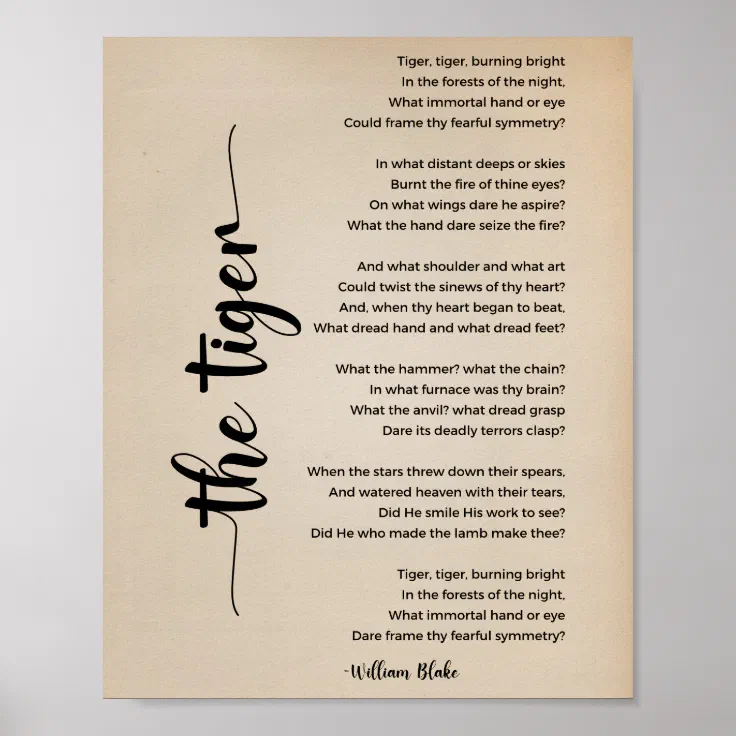 the tiger
Tiger, tiger, burning bright
In the forests of the night,
What immortal hand or eye
Could frame thy fearful symmetry?
In what distant deeps or skies
Burnt the fire of thine eyes?
On what wings dare he aspire?
What the hand dare seize the fire?
And what shoulder and what art
Could twist the sinews of thy heart?
And, when thy heart began to beat,
What dread hand and what dread feet?
What the hammer? what the chain?
In what furnace was thy brain?
What the anvil? what dread grasp
Dare its deadly terrors clasp?
When the stars threw down their spears,
And watered heaven with their tears,
Did He smile His work to see?
Did He who made the lamb make thee?
Tiger, tiger, burning bright
In the forests of the night,
What immortal hand or eye
Dare frame thy fearful symmetry?
-William Blake